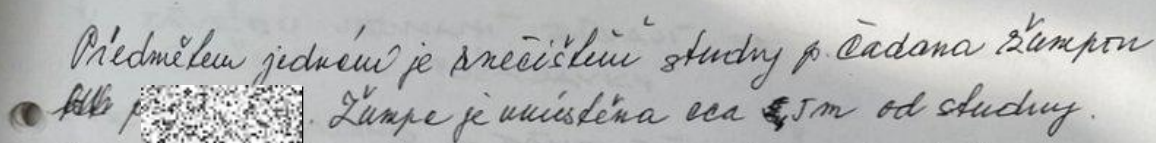 Předmětem jednání je znečištění studny p. Čadana žumpou
p. Žumpa je umístěna cca 5 m od studny.